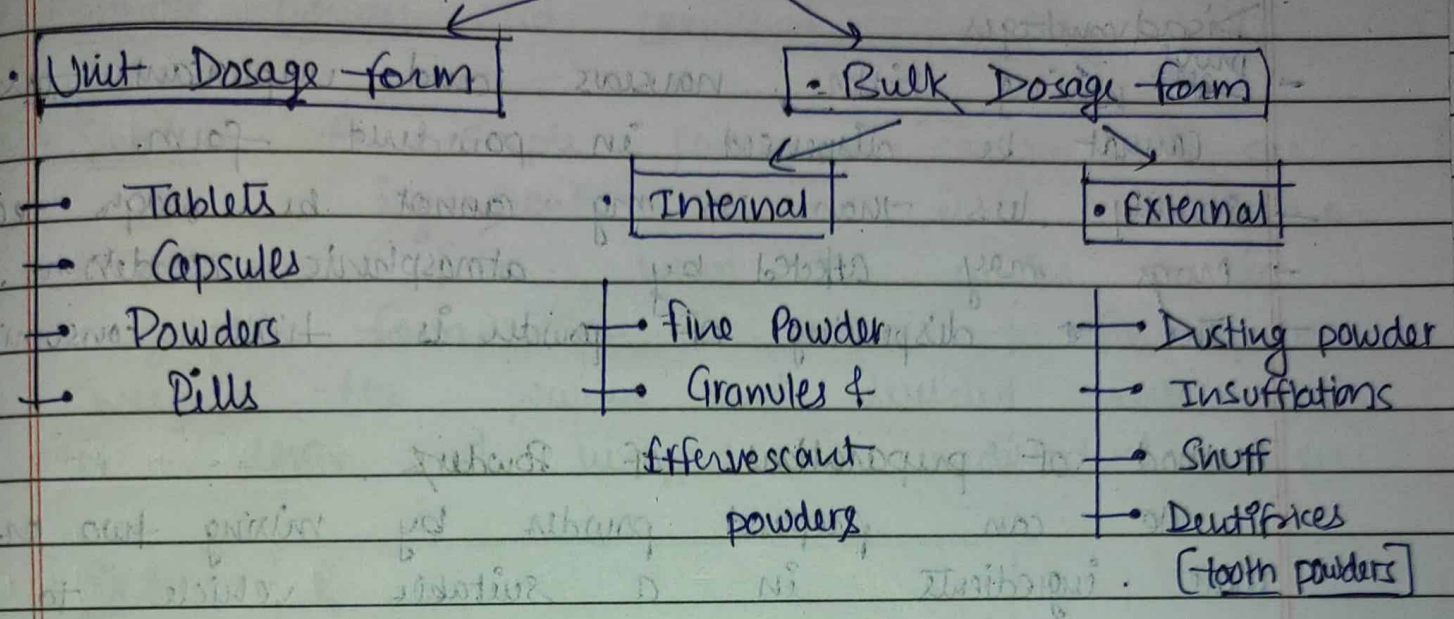 • Unit Dosage form
• Bulk Dosage form
• Tablets
• Capsules
• Powders
• Pills
• Internal
• fine Powder
• Granules &
Effervescant
powders
• External
• Dusting powder
• Insufflations
• Snuff
• Dentifrices
[tooth powders]